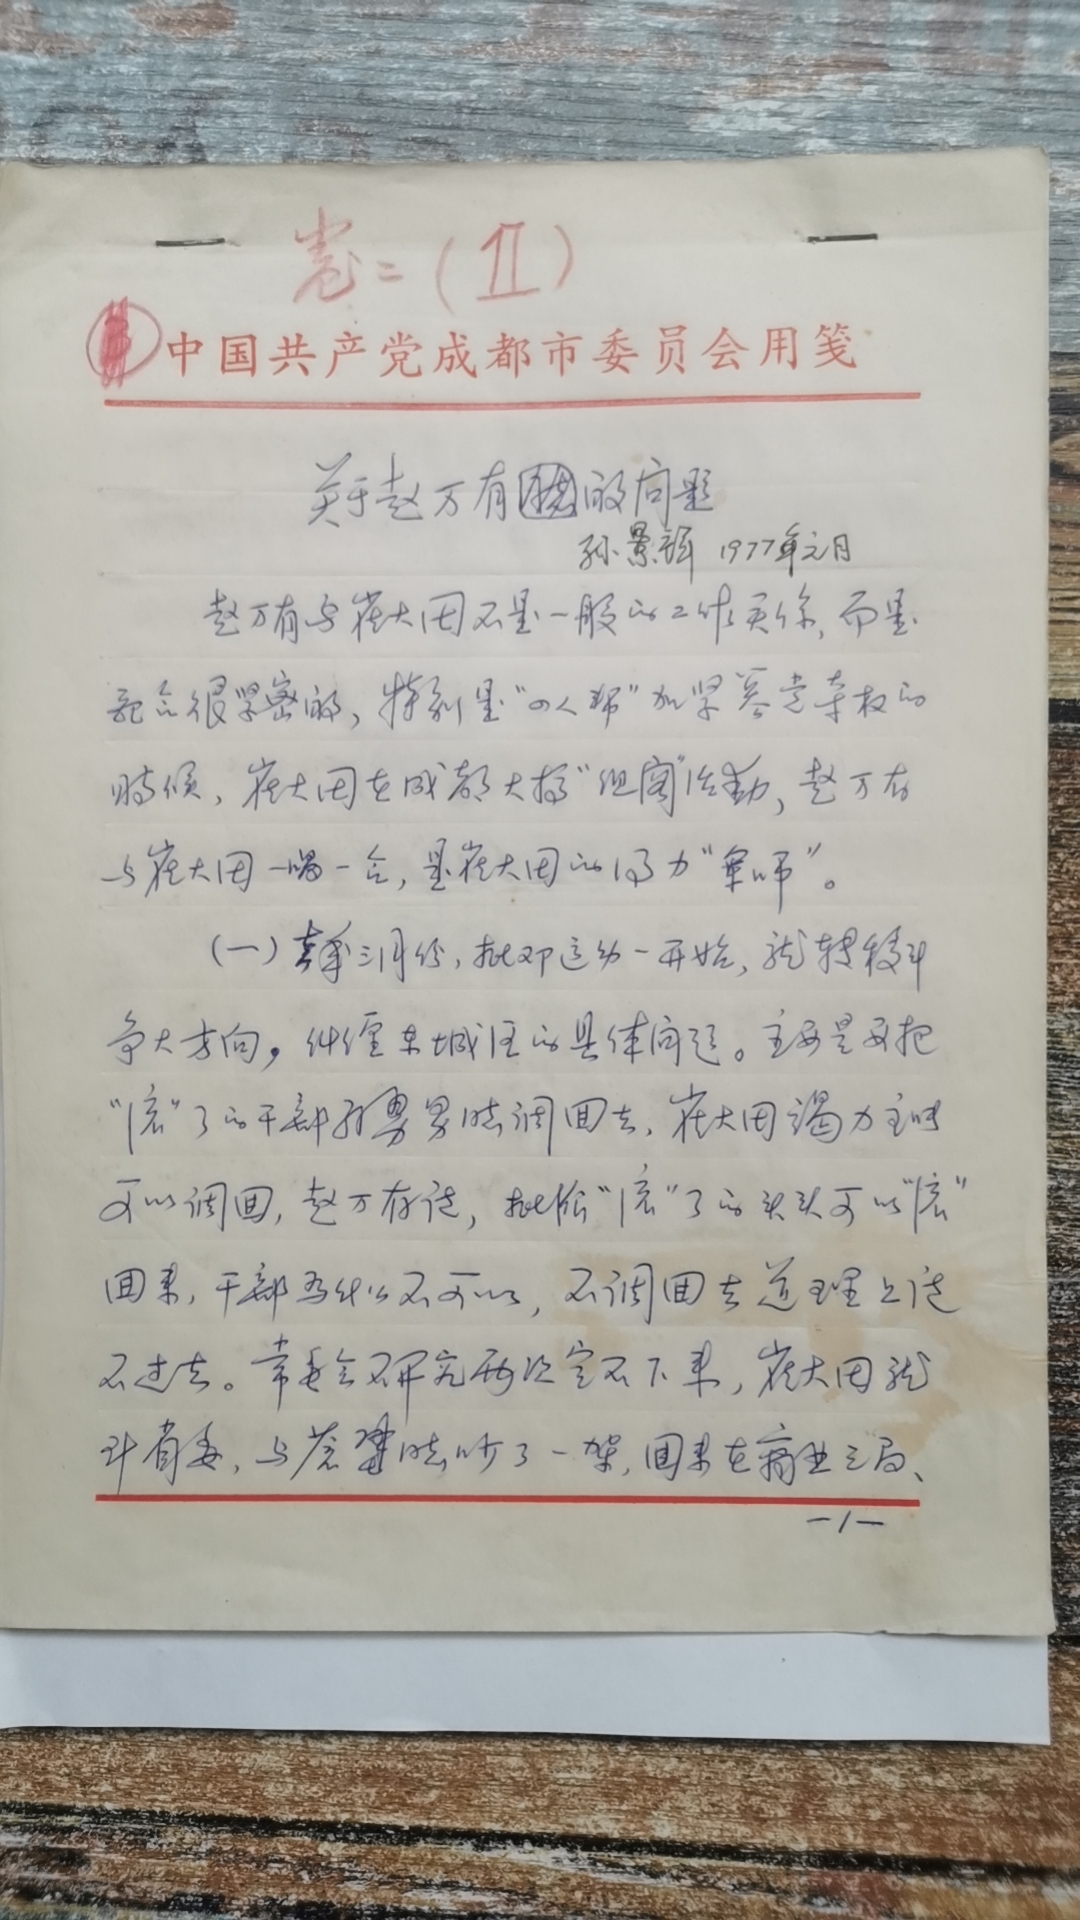 卷二(Ⅱ)
中国共产党成都市委员会用笺
关于赵万有的问题
孙景 1977年元月
赵万有与崔大田不是一般的工作关系,而是
配合很紧密的,特别是“四人帮”加紧篡党夺权的
时候,崔大田在成都大搞“组阁”活动,赵万有
与崔大田一唱一合,是崔大田的得力“军师”。
(一)去年三月份,批邓运动一开始,就转移斗
争大方向,纠缠东城区的具体问题。主要是要把
“滚”了的干部孙男晓调回去,崔大田竭力主张
可以调回,赵万有说,批臭“滚”了的头头可以“滚”
回来,干部为什么不可以,不调回去道理上说
不过去。常委会研究两次定不下来,崔大田就
到省委,与晓吵了一架,回来在商业三局、
—1—